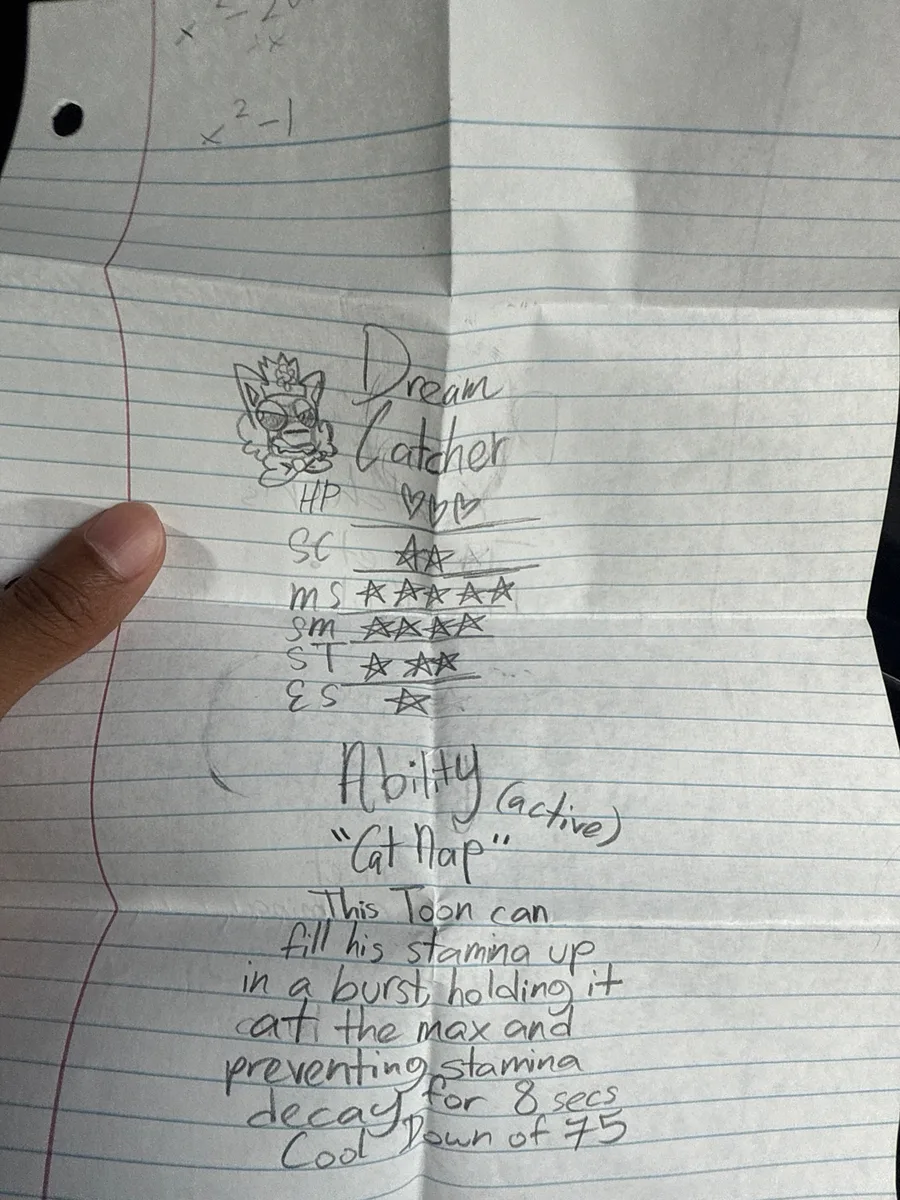 x² - 1
Dream
Catcher
HP ♡♡♡
SC ☆☆
MS ☆☆☆☆☆
SM ☆☆☆☆
ST ☆☆☆
ES ☆
Ability (active)
"Cat Nap"
This Toon can
fill his stamina up
in a burst, holding it
at the max and
preventing stamina
decay for 8 secs
Cool Down of 75